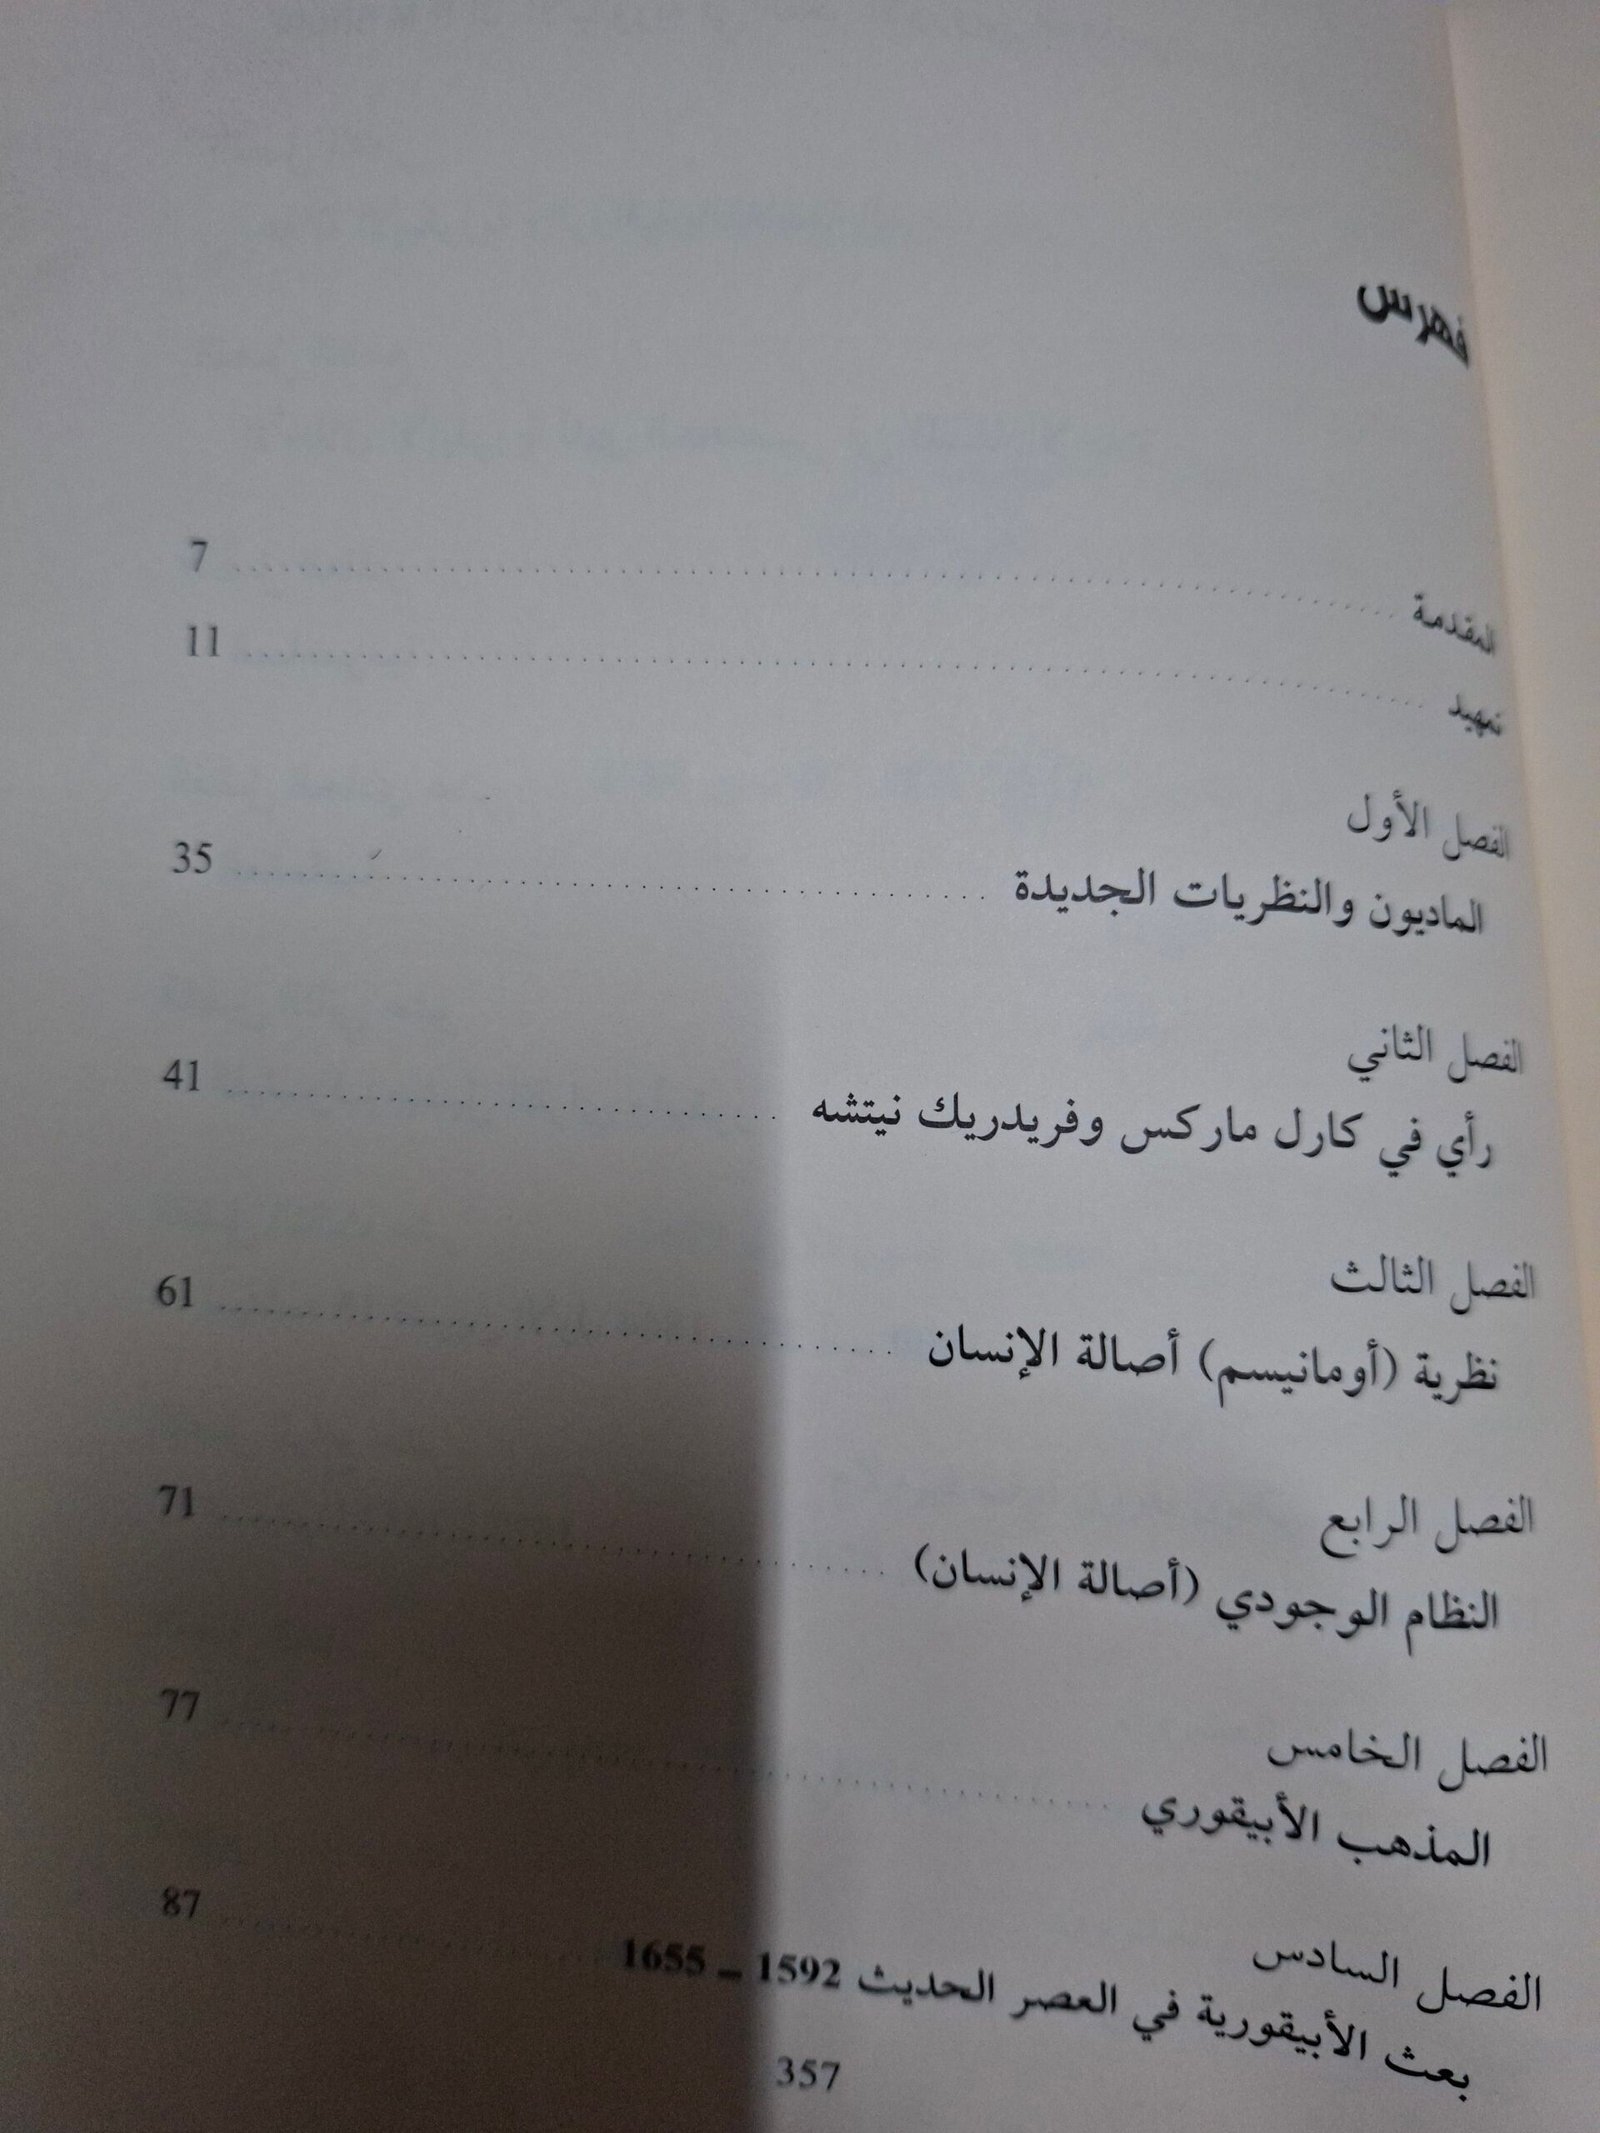 فهرس
المقدمة 7
تمهيد 11
الفصل الأول
الماديون والنظريات الجديدة 35
الفصل الثاني
رأي في كارل ماركس وفريدريك نيتشه 41
الفصل الثالث
نظرية (أومانيسم) أصالة الإنسان 61
الفصل الرابع
النظام الوجودي (أصالة الإنسان) 71
الفصل الخامس
المذهب الأبيقوري 77
الفصل السادس
بعث الأبيقورية في العصر الحديث 1592 ـ 1655 87
357